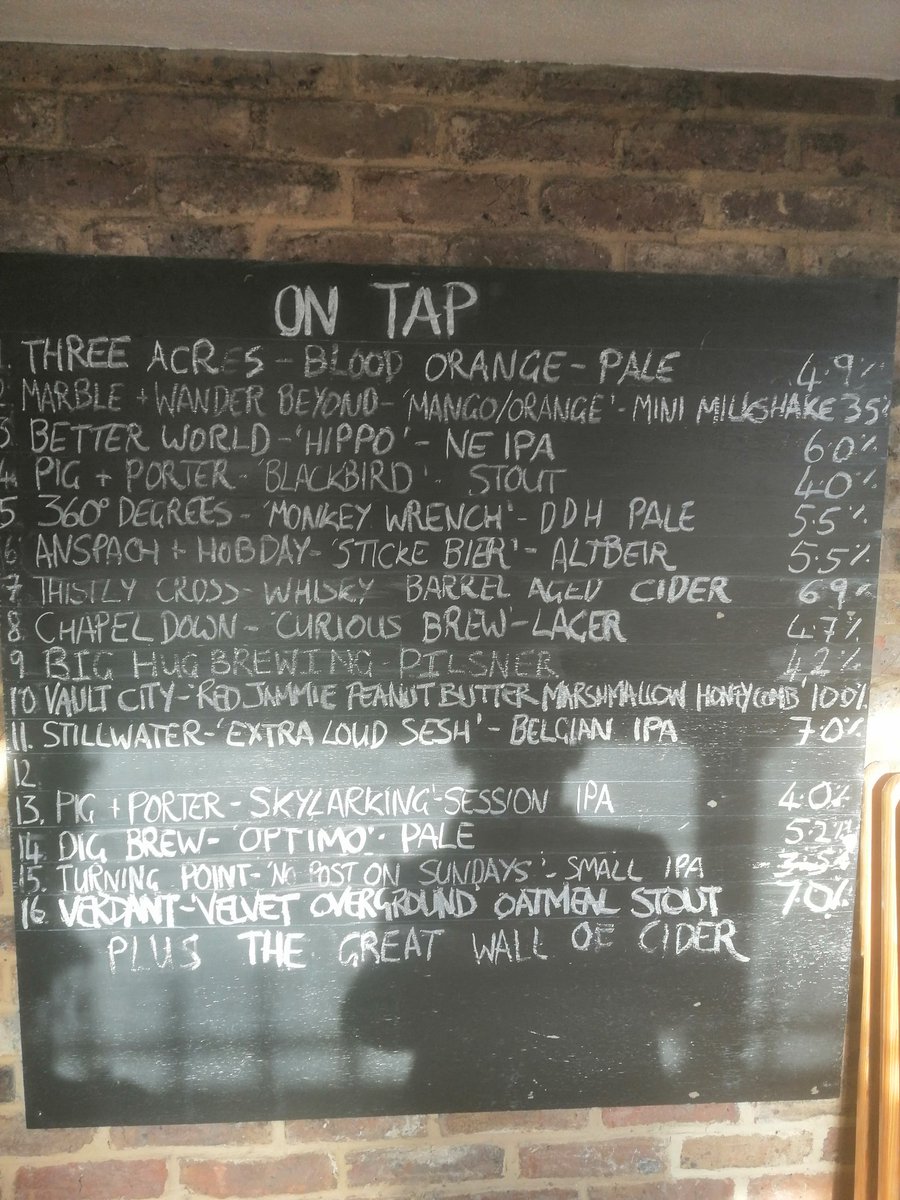 ON TAP
1. THREE ACRES - BLOOD ORANGE - PALE 4.9%
2 MARBLE + WANDER BEYOND - 'MANGO/ORANGE' - MINI MILKSHAKE 3.5%
3 BETTER WORLD - 'HIPPO' - NE IPA 6.0%
4. PIG + PORTER - 'BLACKBIRD' - STOUT 4.0%
5 360° DEGREES - 'MONKEY WRENCH' - DDH PALE 5.5%
6 ANSPACH + HOBDAY - 'STICKE BIER' - ALTBEIR 5.5%
7 THISTLY CROSS - WHISKY BARREL AGED CIDER 6.9%
8 CHAPEL DOWN - 'CURIOUS BREW' - LAGER 4.7%
9 BIG HUG BREWING - PILSNER 4.2%
10 VAULT CITY - RED JAMMIE PEANUT BUTTER MARSHMALLOW HONEYCOMB 10.0%
11. STILLWATER - 'EXTRA LOUD SESH' - BELGIAN IPA 7.0%
12
13. PIG + PORTER - SKYLARKING' - SESSION IPA 4.0%
14 DIG BREW - 'OPTIMO' - PALE 5.2%
15. TURNING POINT - 'NO POST ON SUNDAYS' - SMALL IPA 3.5%
16 VERDANT - VELVET OVERGROUND OATMEAL STOUT 7.0%
PLUS THE GREAT WALL OF CIDER